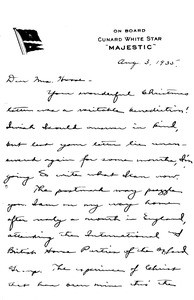 ON BOARD
CUNARD WHITE STAR
"MAJESTIC"
Aug 3, 1935
Dear Mrs. House -
Your wonderful Christmas
letter was a veritable benediction!
I wish I could answer in kind,
but lest your letter lie unan-
swered again for some months I'm
going to write what I can now.
The postmark may puzzle
you. I am on my way home
after nearly a month in England,
attending the International &
British House Parties of the Oxford
Group. The experience of Christ
that has own into the